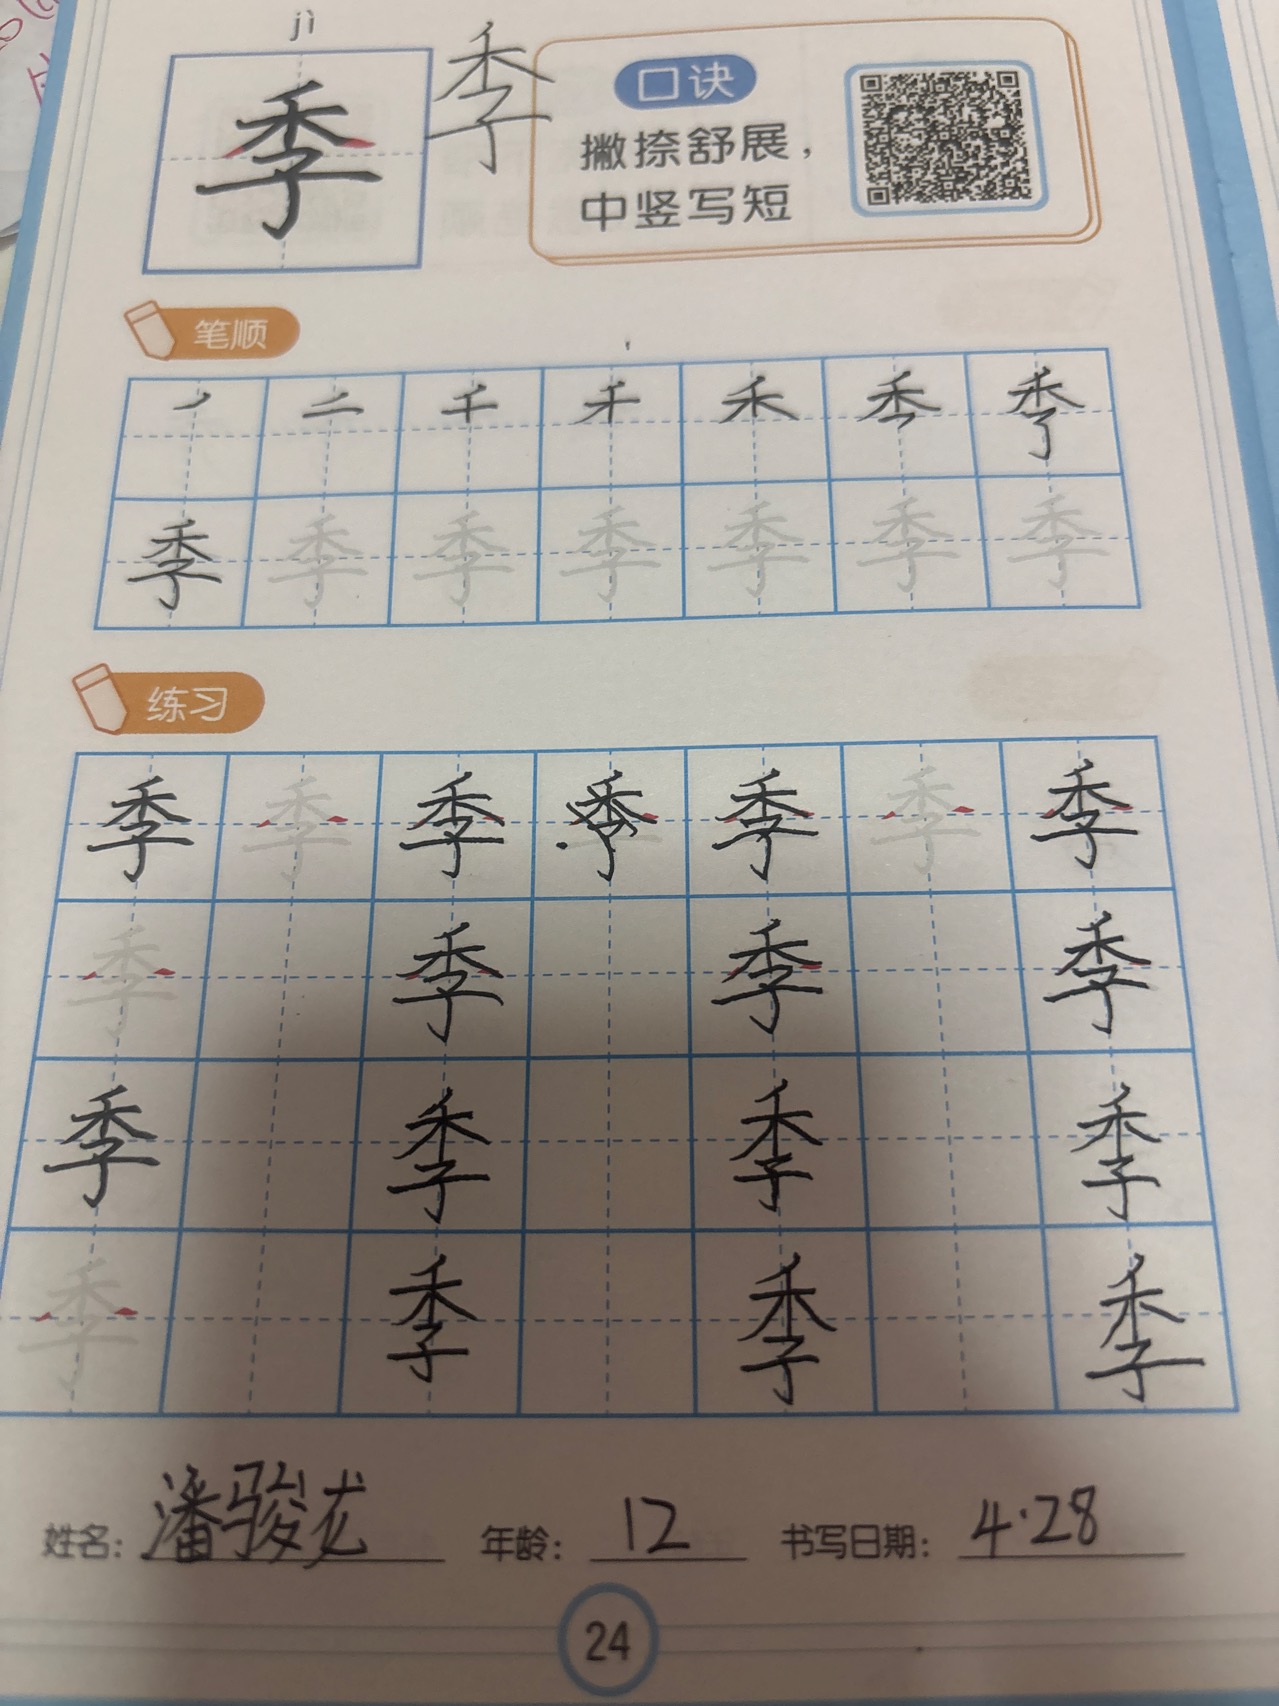 jì
季 季
口诀
撇捺舒展，
中竖写短
笔顺
季 季 季 季 季 季 季
练习
季 季 季 季 季 季 季
季 季 季 季
季 季 季 季
季 季 季 季
姓名： 潘骏龙 年龄： 12 书写日期： 4·28
24